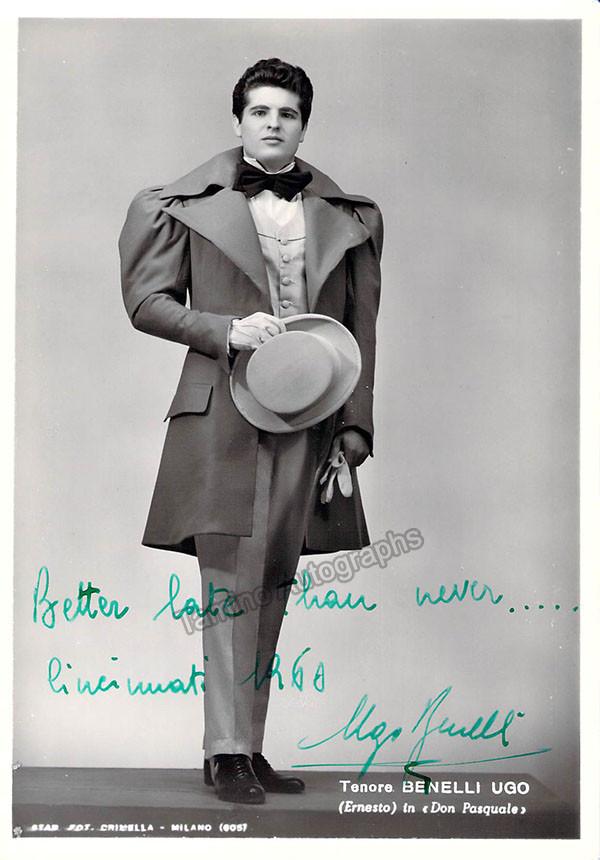 Better late than never.....
Cincinnati
Ugo Benelli
Tamino Autographs
Tenore BENELLI UGO
(Ernesto) in «Don Pasquale»
FOT. CRIMELLA - MILANO (605)